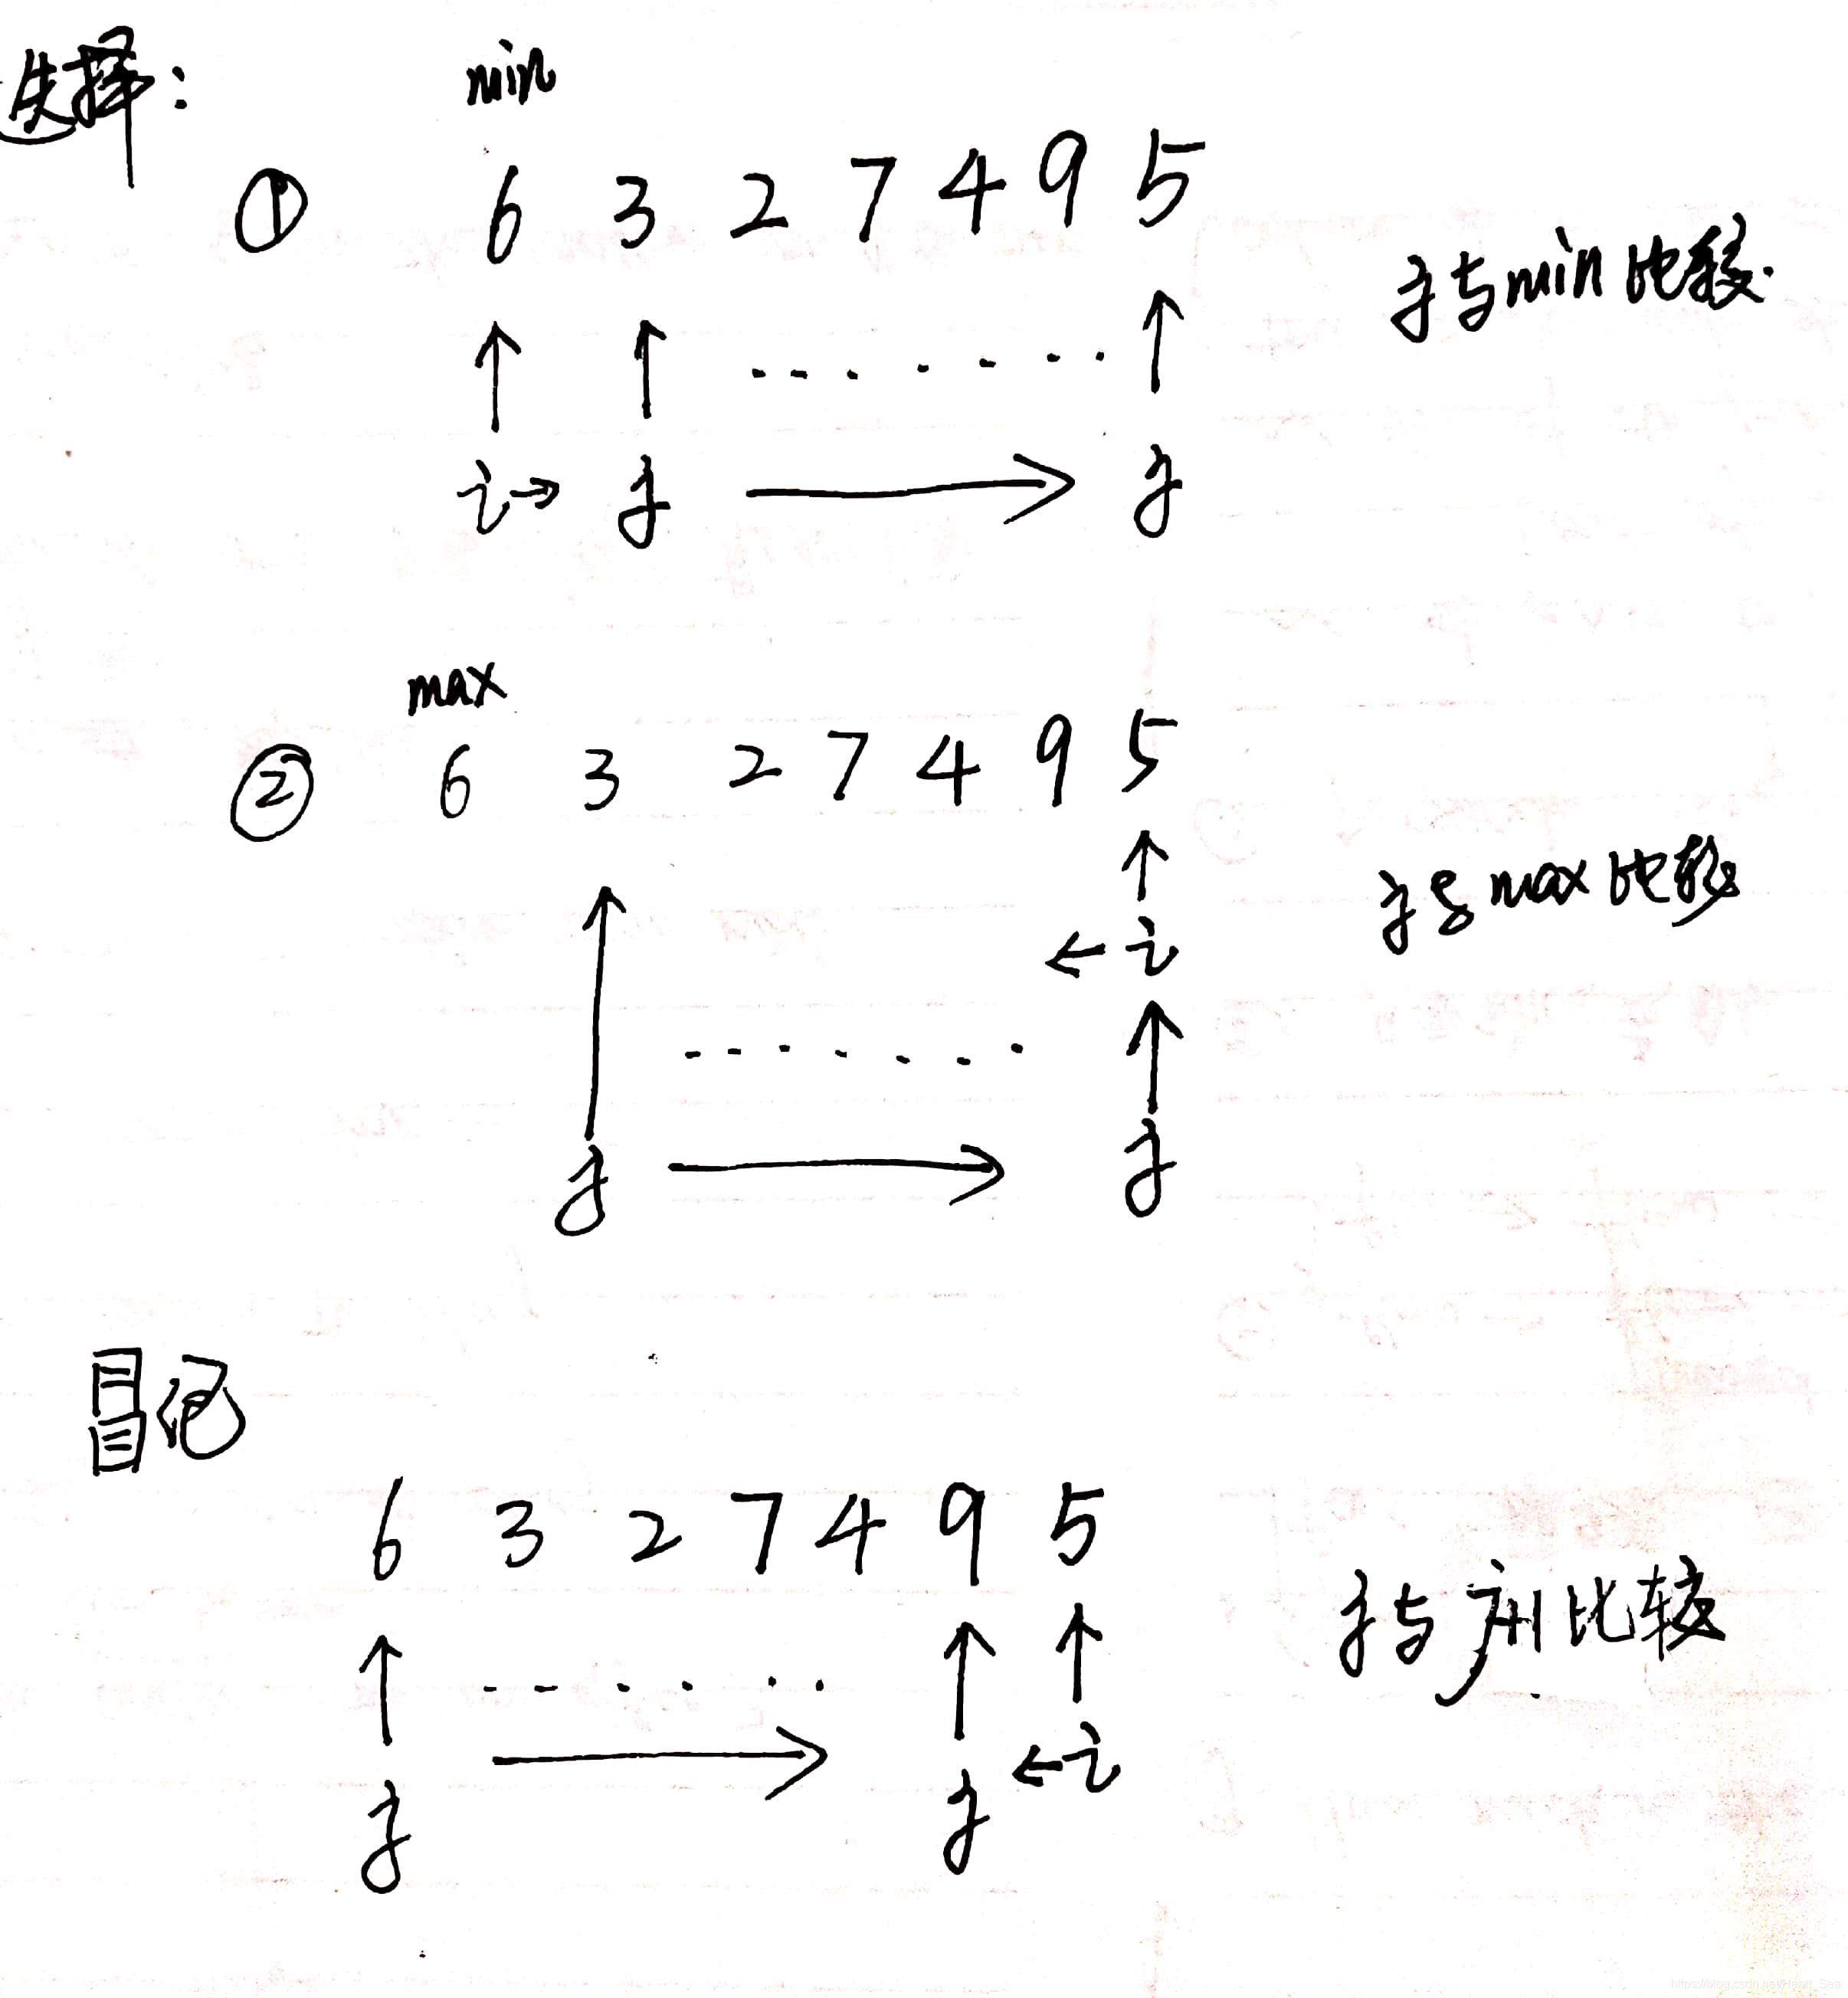 选择:
min
① 6 3 2 7 4 9 5
j与min比较.
i j j
max
② 6 3 2 7 4 9 5
j与max比较
i
j j
冒泡
6 3 2 7 4 9 5
j与j+1比较
j j i
https://blog.csdn.net/Heart_Sea